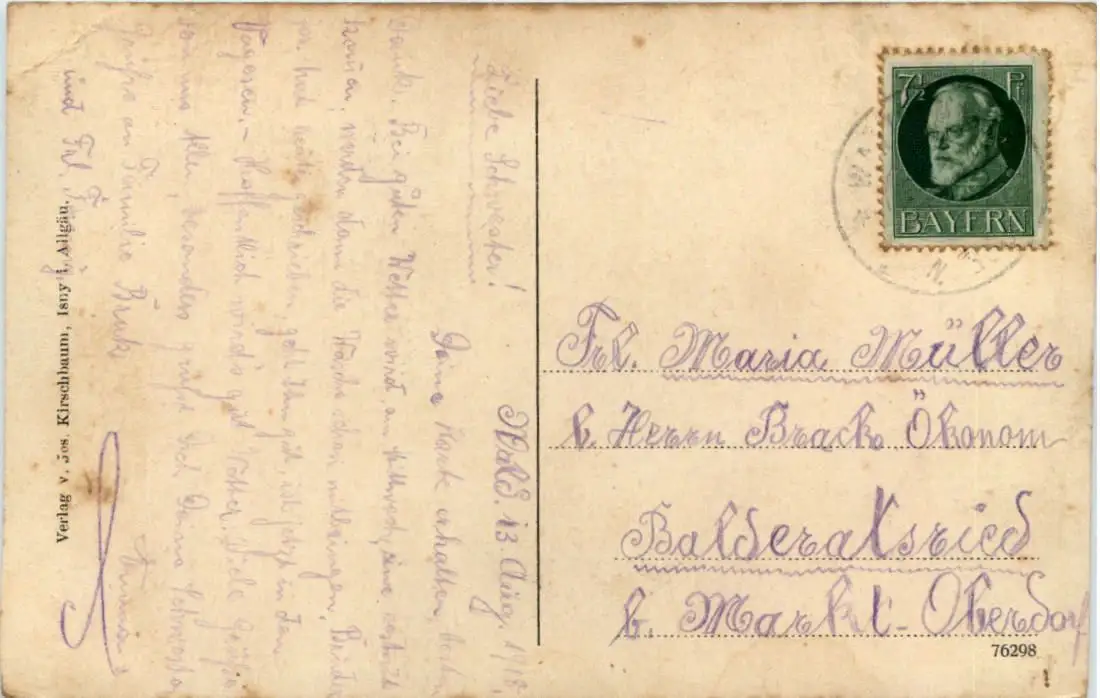 Liebe Schwester!
Wald. 13. Aug. 1918.
Deine Karte erhalten, besten
Dank. Bei guten Wetter wird am Mittwoch, eine
kommen, werden dann die Wäsche schon mitbringen.
hat heute geschrieben, geht Ihm gut, ist jetzt in den
Vogesen. – Hoffentlich wird's gut Wetter. Viele Grüße
von uns Allen, besonders grüßt Dich Deine Schwester
Grüße an Familie Brack
und Frl.
Verlag v. Jos. Kirschbaum, Isny i. Allgäu.
7½ Pf
BAYERN
Frl. Maria Müller
b. Herrn Brack Ökonom
Balderatsried
b. Markt-Oberdorf
76298